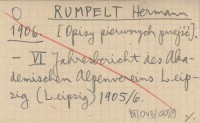 O RUMPELT Hermann
1906. [Opisy pierwszych przejść].
- VI Jahresbericht des Aka-
demischen Alpenvereins Leip-
zig (Leipzig) 1905/6.